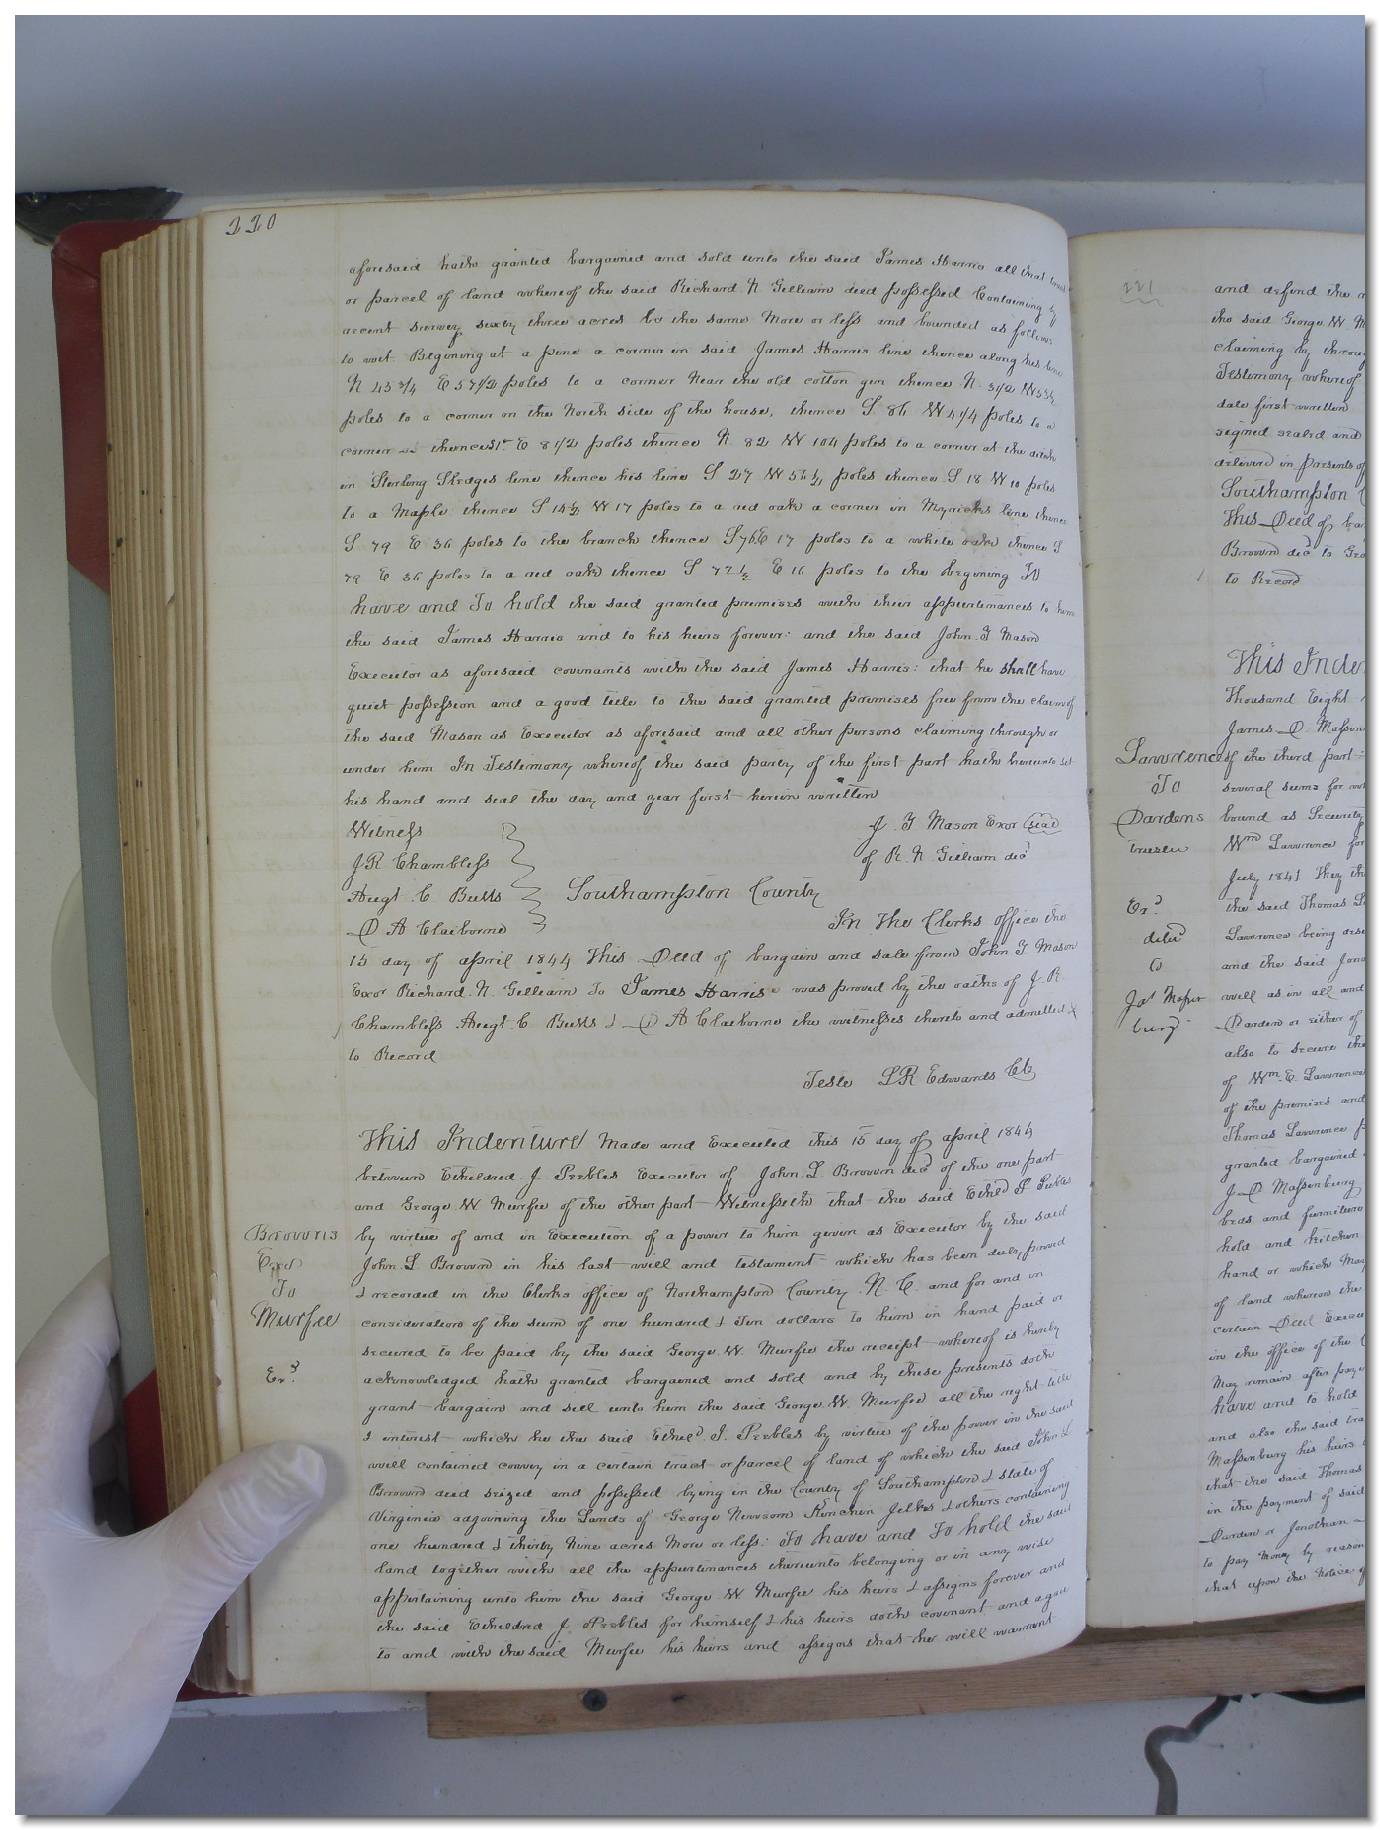 220
aforesaid hath granted bargained and sold unto the said James Harris all that tract
or parcel of land whereof the said Richard N Gilliam decd possessed Containing by
recent survey sixty three acres be the same More or less and bounded as follows
to wit Begining at a pine a corner in said James Harris line thence along his line
N 43 3/4 E 57 1/2 poles to a corner Near the old cotton gin thence N 31/2 W
poles to a corner on the North side of the house, thence S 86 W 4 1/4 poles to a
corner thence E 8 1/2 poles thence N 82 W 104 poles to a corner at the ditch
in Sterling line thence his line S 27 W poles thence S 18 W 10 poles
to a Maple thence S 15 1/2 W 17 poles to a red oak a corner in Myricks line thence
S 79 E 36 poles to the branch thence S 76 E 17 poles to a white oak thence S
79 E 36 poles to a red oak thence S 77 1/2 E 16 poles to the begining To
have and To hold the said granted premises with their appurtinances to him
the said James Harris and to his heirs forever: and the said John Y Mason
Executor as aforesaid covenants with the said James Harris: that he shall have
quiet possession and a good title to the said granted premises free from the claim of
the said Mason as Executor as aforesaid and all other persons claiming through or
under him In Testimony whereof the said party of the first part hath hereunto set
his hand and seal the day and year first herein written
Witness
J. Y Mason Exor seal
J R Chambless
of R. N Gilliam decd
Augt. C Butts
Southampton County
D A Claiborne
In The Clerks office the
15 day of april 1844 This Deed of bargain and sale from John Y Mason
Exor Richard. N. Gilliam To James Harris was proved by the oaths of J. R
Chambless Augt. C Butts & D A Claiborne the witnesses thereto and admitted
to Record
Teste L R Edwards Ck
This Indenture Made and Executed this 15 day of april 1844
between Etheldred J Peebles Executor of John. L Brown decd of the one part
and George W Murfee of the other part Witnesseth that the said Etheld J Peebles
Browns
by virtue of and in Execution of a power to him given as Executor by the said
Exor
John. L Brown in his last will and testament which has been duly proved
To
& recorded in the Clerks office of Northampton County N. C. and for and in
Murfee
consideration of the sum of one hundred & Ten dollars to him in hand paid or
secured to be paid by the said George. W. Murfee the receipt whereof is hereby
Exd
acknowledged hath granted bargained and sold and by these presents doth
grant bargain and sell unto him the said George. W. Murfee all the right title
& interest which he the said Etheld. J. Peebles by virtue of the power in the said
will contained convey in a certain tract or parcel of land of which the said John L
Brown died seized and possessed lying in the County of Southampton & state of
Virginia adjoining the Lands of George Newsom Kinchin & others containing
one hundred & thirty Nine acres More or less: To have and To hold the said
land together with all the appurtinances thereunto belonging or in any wise
appertaining unto him the said George W Murfee his heirs & assigns forever and
the said Etheldred J Peebles for himself & his heirs doth covenant and agree
to and with the said Murfee his heirs and assigns that he will warrant
221
and defend the
the said George W
claiming by
Testimony whereof
date first written
signed seald and
delivered in presents of
Southampton
This Deed of
Brown decd to
to Record
This
Thousand Eight
James D
Lawrence
of the third part
To
several sums for
Dardens
bound as Security
trustee
Wm Lawrence for
July 1841 they
Exd
the said Thomas
delivd
Lawrence being
to
and the said
Jas
well as in all and
Darden or either of
also to secure the
of Wm. E. Lawrence
of the premises and
Thomas Lawrence
granted bargained
J D Massenburg
beds and furniture
hold and kitchen
hand or which may
of land whereon the
certain Deed
in the office of the
May remain after
have and to hold
and also the said
Massenburg his heirs
that the said Thomas
in the payment of said
Darden or Jonathan
to pay Money by reason
that upon the Notice